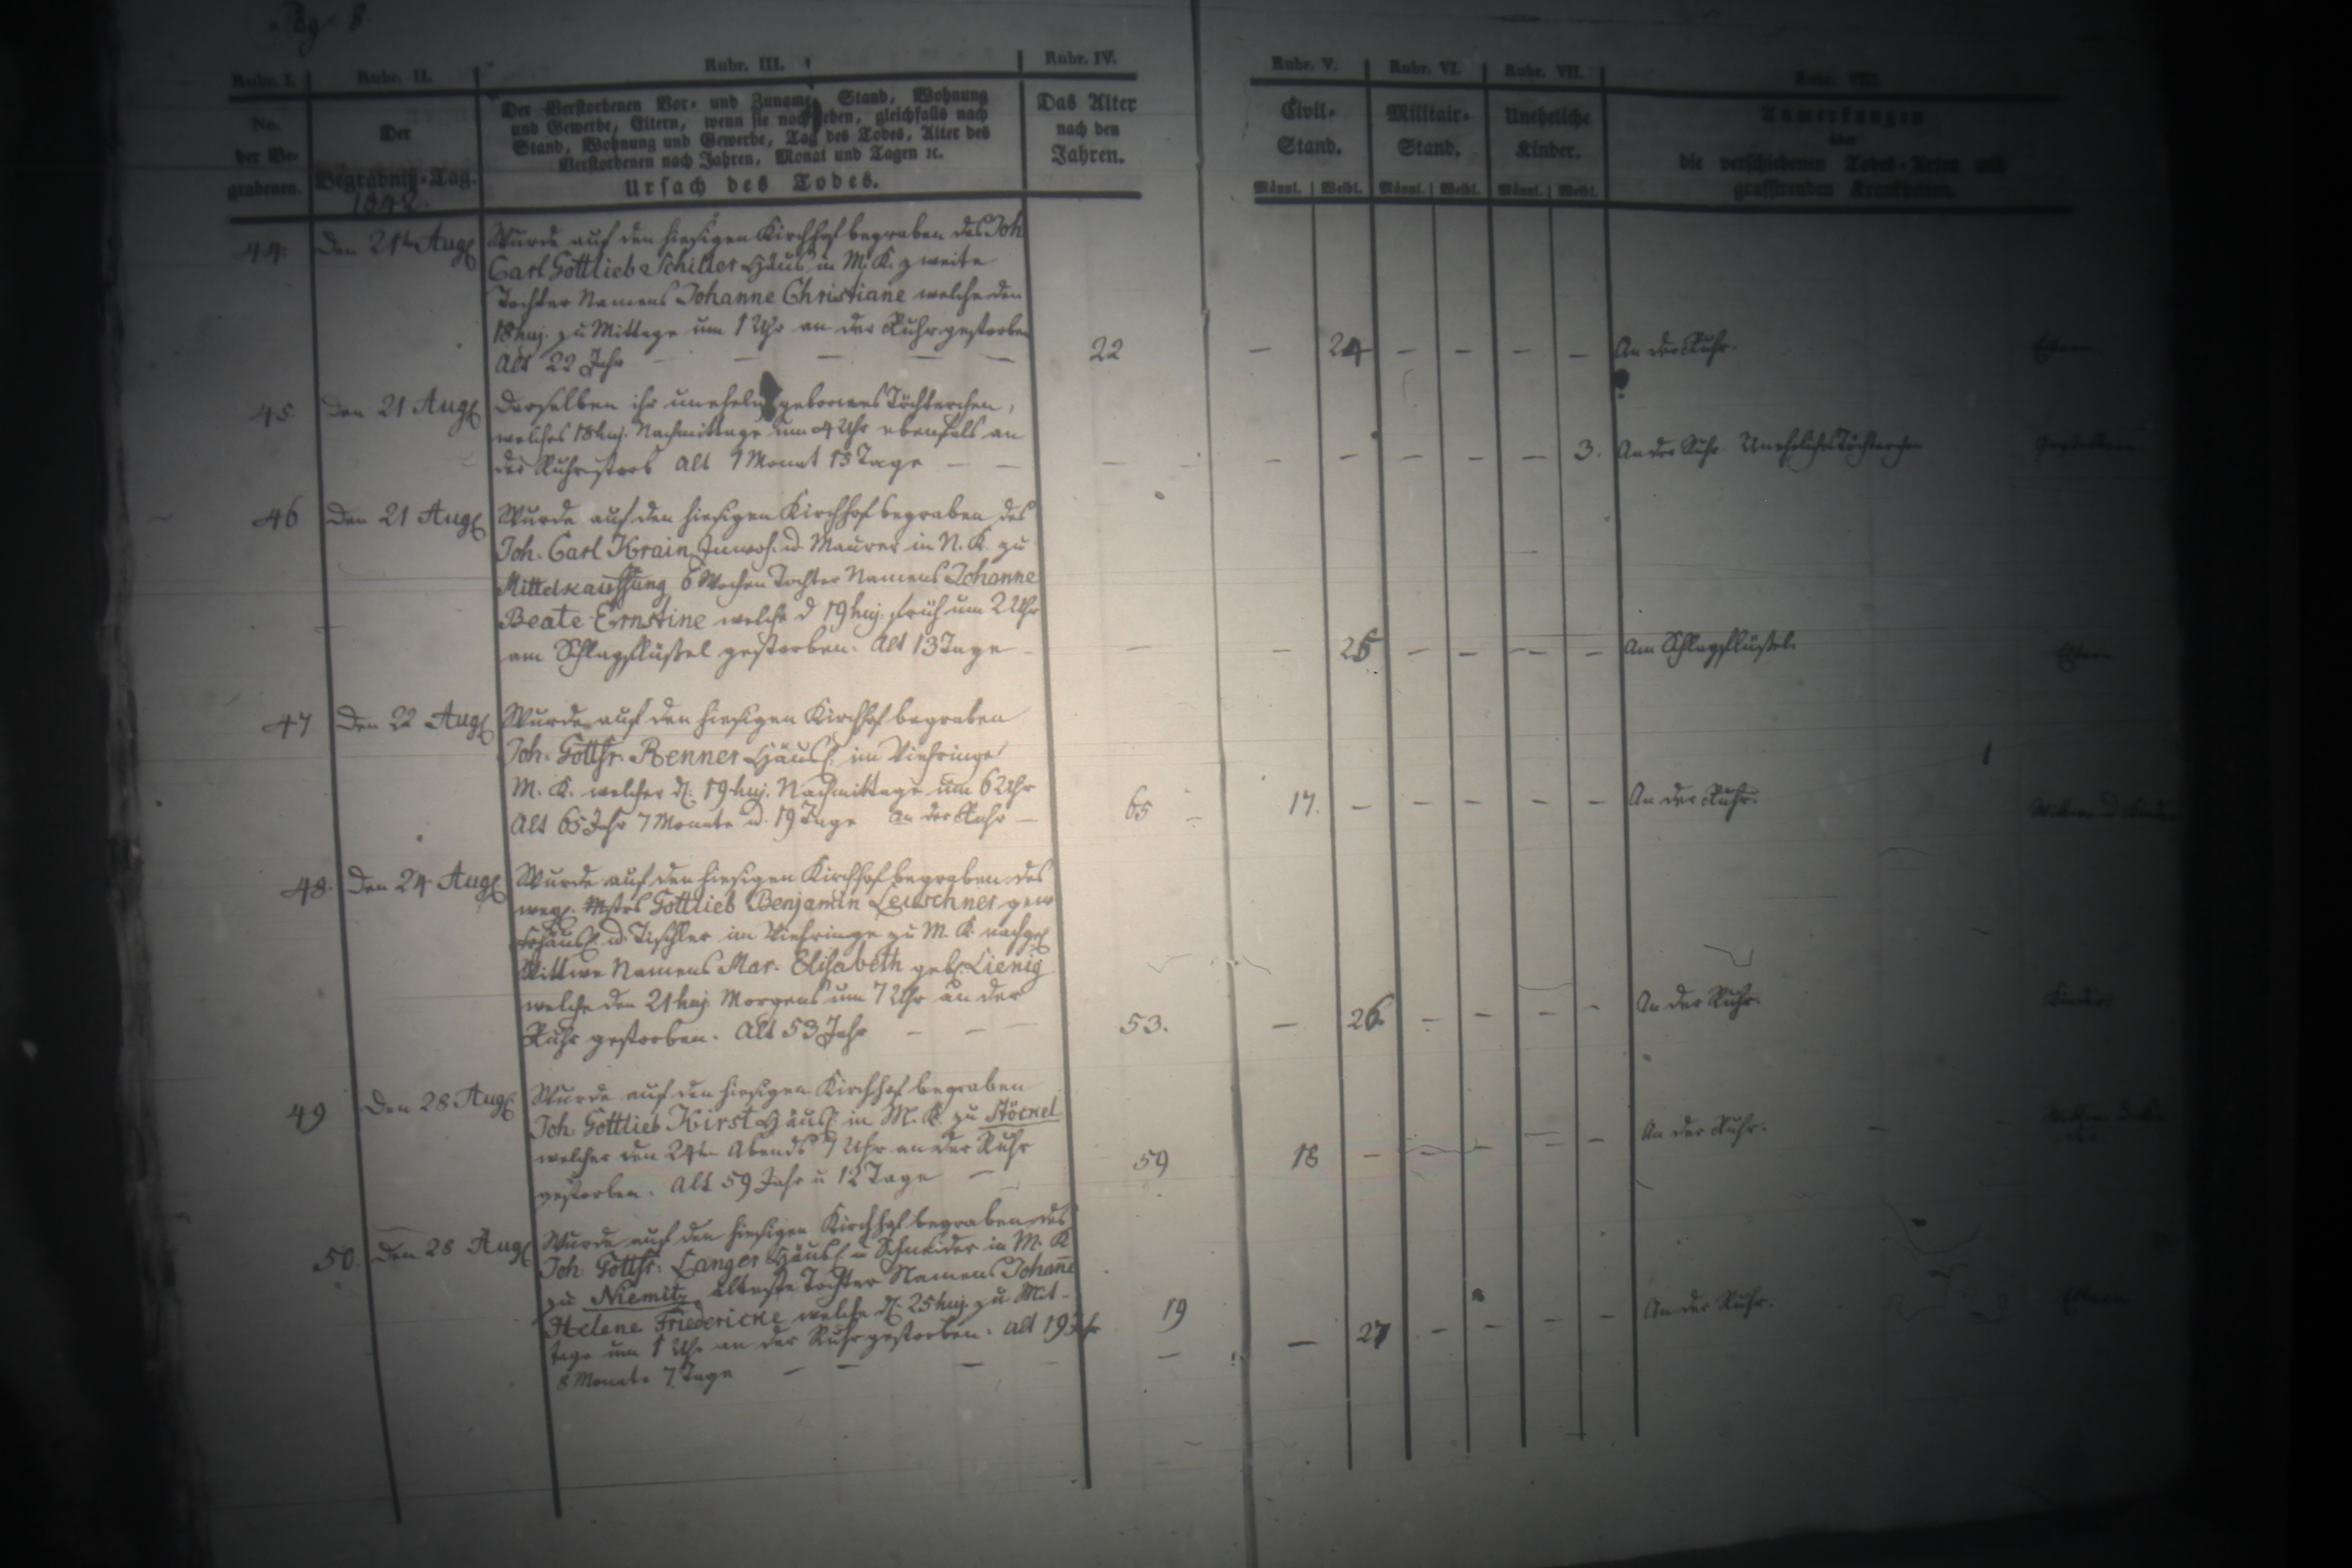 Pag. 8.
Rubr. I. Rubr. II. Rubr. III. Rubr. IV. Rubr. V. Rubr. VI. Rubr. VII. Rubr. VIII.
No. der Begrabenen.
Der Begräbniß-Tag.
1842.
Der Verstorbenen Vor- und Zuname, Stand, Wohnung
und Gewerbe, Eltern, wenn sie noch leben, gleichfalls nach
Stand, Wohnung und Gewerbe, Tag des Todes, Alter des
Verstorbenen nach Jahren, Monat und Tagen ꝛc.
Ursach des Todes.
Das Alter
nach den
Jahren.
Civil-
Stand.
Männl. Weibl.
Militair-
Stand.
Männl. Weibl.
Uneheliche
Kinder.
Männl. Weibl.
Anmerkungen
über
die verschiedenen Todes-Arten und
grassirenden Krankheiten.
44. Den 21t Aug. Wurde auf den hiesigen Kirchhof begraben des Joh
Carl Gottlieb Schiller Häusl. in M. K. zweite
Tochter Namens Johanne Christiane welche den
18 huj. zu Mittage um 1 Uhr an der Ruhr gestorben
Alt 22 Jahr — — — — — 22 — 24 — — — — An der Ruhr. Eltern
45. Den 21 Aug. Derselben ihr unehel. gebornes Töchterchen,
welches 18 huj. Nachmittags um 4 Uhr ebenfals an
der Ruhr starb Alt 1 Monat 13 Tage — — — — — — — — 3. An der Ruhr. Uneheliches Töchterchen
46 Den 21 Aug. Wurde auf den hiesigen Kirchhof begraben des
Joh. Carl Krain Inwoh. u. Maurer in N. K. zu
Mittelkauffung 6 Wochen Tochter Namens Johanne
Beate Ernstine welche d 19 huj. früh um 2 Uhr
am Schlagflüßel gestorben. Alt 13 Tage — — — 25 — — — — Am Schlagflüßel. Eltern
47 Den 22 Aug. Wurde auf den hiesigen Kirchhof begraben
Joh. Gottfr. Renner Häusl. im Viehringe
M. K. welcher d. 19 huj. Nachmittags um 6 Uhr
Alt 65 Jahr 7 Monate u. 19 Tage an der Ruhr — 65 17. — — — — — An der Ruhr.
48. Den 24 Aug. Wurde auf den hiesigen Kirchhof begraben des
weyl. Mstrs Gottlieb Benjamin Leuschner gew
Häusl. u. Tischler im Viehringe zu M. K. nachgel
Wittwe Namens Mar. Elisabeth geb. Lienig
welche den 21 huj. Morgens um 7 Uhr an der
Ruhr gestorben. Alt 53 Jahr — — — 53. — 26. — — — — An der Ruhr. Kinder.
49 Den 28 Aug. Wurde auf den hiesigen Kirchhof begraben
Joh. Gottlieb Kirst Häusl. in M. K. zu Stöckel
welcher den 24ten Abends 7 Uhr an der Ruhr
gestorben. Alt 59 Jahr u 12 Tage — 59 18 — — — — — An der Ruhr.
50. Den 28 Aug. Wurde auf den hiesigen Kirchhof begraben des
Joh. Gottfr. Langer Häusl. u Schneider in M. K
zu Niemitz älteste Tochter Namens Johañe
Helene Friedericke welche d. 25 huj. zu Mit-
tage um 1 Uhr an der Ruhr gestorben. Alt 19 Jahr
8 Monate 7 Tage — — — 19 — 27 — — — — An der Ruhr. Eltern